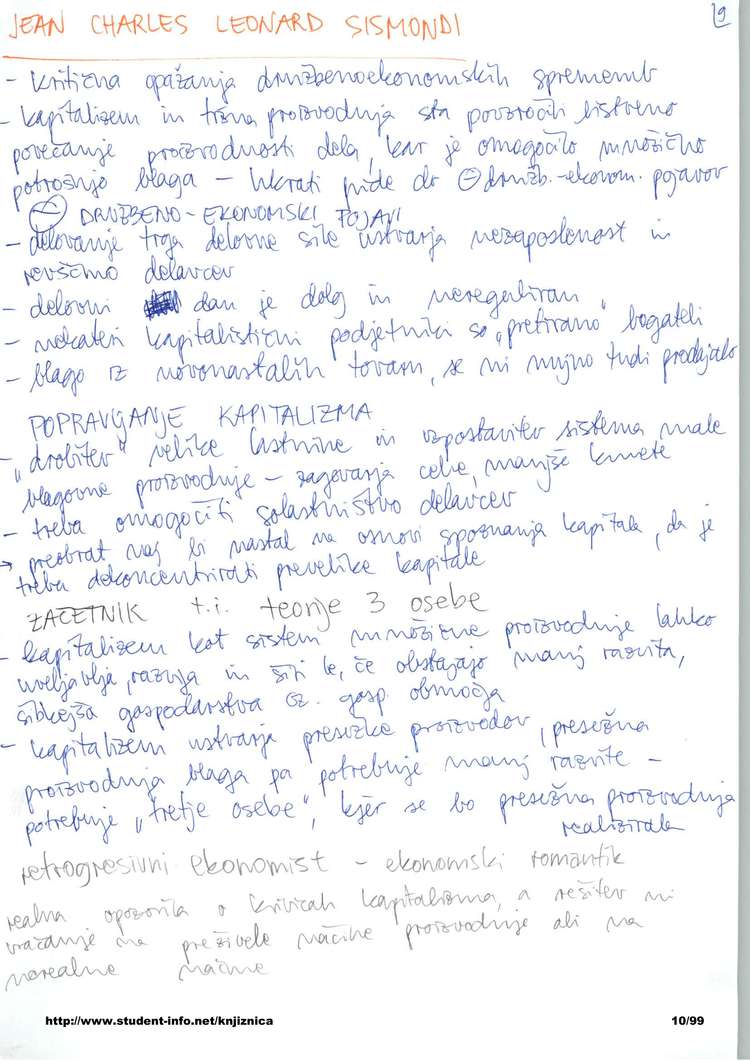 9
JEAN CHARLES LEONARD SISMONDI
- kritična opažanja družbenoekonomskih sprememb
- kapitalizem in tržna proizvodnja sta povzročili bistveno
povečanje proizvodnosti dela, kar je omogočilo množično
potrošnjo blaga - hkrati pride do ⊖ družb.-ekonom. pojavov
⊖ DRUŽBENO-EKONOMSKI POJAVI
- delovanje trga delovne sile ustvarja nezaposlenost in
revščino delavcev
- delovni dan je dolg in nereguliran
- nekateri kapitalistični podjetniki so "pretirano" bogateli
- blago iz novonastalih tovarn, se ni nujno tudi prodajalo
POPRAVLJANJE KAPITALIZMA
- "drobitev" velike lastnine in vzpostavitev sistema male
blagovne proizvodnje - zagovarja cehe, manjše kmete
- treba omogočiti solastništvo delavcev
→ preobrat naj bi nastal na osnovi spoznanja kapitala, da je
treba dekoncentrirati prevelike kapitale
ZAČETNIK t.i. teorije 3 osebe
- kapitalizem kot sistem množične proizvodnje lahko
uveljavlja, razvija in širi le, če obstajajo manj razvita,
šibkejša gospodarstva oz. gosp. območja
- kapitalizem ustvarja presežke proizvodov, presežna
proizvodnja blaga pa potrebuje manj razvite -
potrebuje "tretje osebe", kjer se bo presežna proizvodnja
realizirala
retrogresivni ekonomist - ekonomski romantik
realna opozorila o krivicah kapitalizma, a rešitev ni
vračanje na preživele načine proizvodnje ali na
nerealne načine
http://www.student-info.net/knjiznica
10/99